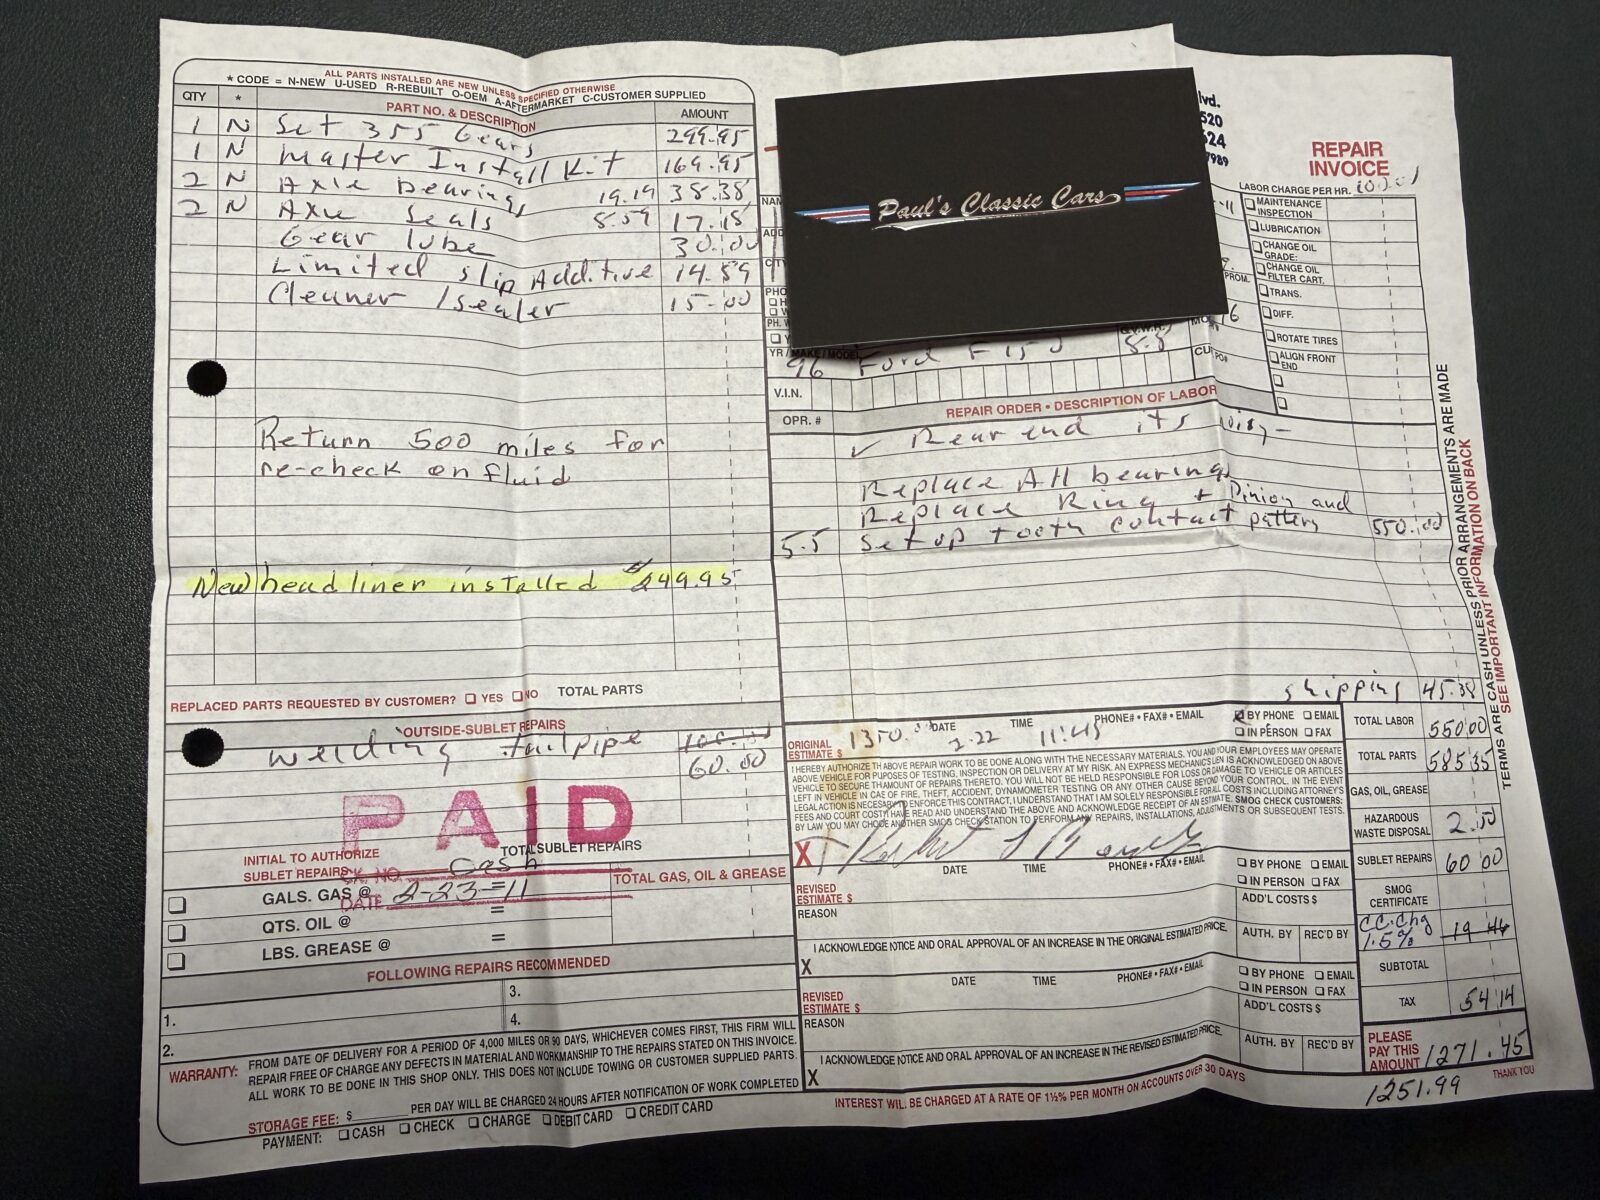 ALL PARTS INSTALLED ARE NEW UNLESS SPECIFIED OTHERWISE
* CODE = N-NEW U-USED R-REBUILT O-OEM A-AFTERMARKET C-CUSTOMER SUPPLIED
QTY * PART NO. & DESCRIPTION AMOUNT
1 N Set 355 Gears 299.95
1 N Master Install Kit 169.95
2 N Axle bearings 19.19 38.38
2 N Axle Seals 8.59 17.18
Gear lube 30.00
Limited slip Additive 14.59
Cleaner / Sealer 15.00
Return 500 miles for
re-check on fluid
New headliner installed $249.95
REPLACED PARTS REQUESTED BY CUSTOMER? YES NO TOTAL PARTS
OUTSIDE-SUBLET REPAIRS
welding tailpipe
60.00
PAID
TOTAL SUBLET REPAIRS
INITIAL TO AUTHORIZE
SUBLET REPAIRS
CK. NO. Cash
DATE 2-23-11
TOTAL GAS, OIL & GREASE
GALS. GAS @ =
QTS. OIL @ =
LBS. GREASE @ =
FOLLOWING REPAIRS RECOMMENDED
1. 3.
2. 4.
WARRANTY: FROM DATE OF DELIVERY FOR A PERIOD OF 4,000 MILES OR 90 DAYS, WHICHEVER COMES FIRST, THIS FIRM WILL
REPAIR FREE OF CHARGE ANY DEFECTS IN MATERIAL AND WORKMANSHIP TO THE REPAIRS STATED ON THIS INVOICE.
ALL WORK TO BE DONE IN THIS SHOP ONLY. THIS DOES NOT INCLUDE TOWING OR CUSTOMER SUPPLIED PARTS.
STORAGE FEE: $ PER DAY WILL BE CHARGED 24 HOURS AFTER NOTIFICATION OF WORK COMPLETED
PAYMENT: CASH CHECK CHARGE DEBIT CARD CREDIT CARD
Paul's Classic Cars
lvd.
520
524
7989
REPAIR
INVOICE
LABOR CHARGE PER HR.
MAINTENANCE
INSPECTION
LUBRICATION
CHANGE OIL
GRADE:
CHANGE OIL
FILTER CART.
TRANS.
DIFF.
ROTATE TIRES
ALIGN FRONT
END
YR / MAKE / MODEL
96 Ford F150 5.8
V.I.N.
OPR. # REPAIR ORDER • DESCRIPTION OF LABOR
✓ Rear end its noisy
Replace All bearings
Replace Ring + Pinion and
5.5 Set up tooth contact pattern 550.00
shipping 45.38
TERMS ARE CASH UNLESS PRIOR ARRANGEMENTS ARE MADE
SEE IMPORTANT INFORMATION ON BACK
ORIGINAL
ESTIMATE $ 1350. DATE 2-22 TIME 11:45 PHONE# • FAX# • EMAIL BY PHONE EMAIL
IN PERSON FAX
I HEREBY AUTHORIZE TH ABOVE REPAIR WORK TO BE DONE ALONG WITH THE NECESSARY MATERIALS. YOU AND YOUR EMPLOYEES MAY OPERATE
ABOVE VEHICLE FOR PUPOSES OF TESTING, INSPECTION OR DELIVERY AT MY RISK. AN EXPRESS MECHANICS LIEN IS ACKNOWLEDGED ON ABOVE
VEHICLE TO SECURE THE AMOUNT OF REPAIRS THERETO. YOU WILL NOT BE HELD RESPONSIBLE FOR LOSS OR DAMAGE TO VEHICLE OR ARTICLES
LEFT IN VEHICLE IN CASE OF FIRE, THEFT, ACCIDENT, DYNAMOMETER TESTING OR ANY OTHER CAUSE BEYOND YOUR CONTROL. IN THE EVENT
LEGAL ACTION IS NECESSARY TO ENFORCE THIS CONTRACT, I UNDERSTAND THAT I AM SOLELY RESPONSIBLE FOR ALL COSTS INCLUDING ATTORNEY'S
FEES AND COURT COSTS. I HAVE READ AND UNDERSTAND THE ABOVE AND ACKNOWLEDGE RECEIPT OF AN ESTIMATE. SMOG CHECK CUSTOMERS:
BY LAW YOU MAY CHOOSE ANOTHER SMOG CHECK STATION TO PERFORM ANY REPAIRS, INSTALLATIONS, ADJUSTMENTS OR SUBSEQUENT TESTS.
X
REVISED
ESTIMATE $ DATE TIME PHONE# • FAX# • EMAIL BY PHONE EMAIL
IN PERSON FAX
REASON ADD'L COSTS $
I ACKNOWLEDGE NOTICE AND ORAL APPROVAL OF AN INCREASE IN THE ORIGINAL ESTIMATED PRICE. AUTH. BY REC'D BY
X
REVISED
ESTIMATE $ DATE TIME PHONE# • FAX# • EMAIL BY PHONE EMAIL
IN PERSON FAX
REASON ADD'L COSTS $
I ACKNOWLEDGE NOTICE AND ORAL APPROVAL OF AN INCREASE IN THE REVISED ESTIMATED PRICE. AUTH. BY REC'D BY
X
INTEREST WILL BE CHARGED AT A RATE OF 1½% PER MONTH ON ACCOUNTS OVER 30 DAYS
TOTAL LABOR 550.00
TOTAL PARTS 585.35
GAS, OIL, GREASE
HAZARDOUS
WASTE DISPOSAL 2.50
SUBLET REPAIRS 60.00
SMOG
CERTIFICATE
CC.Chg
1.5% 19.46
SUBTOTAL
TAX 54.14
PLEASE
PAY THIS
AMOUNT 1271.45
THANK YOU
1251.99